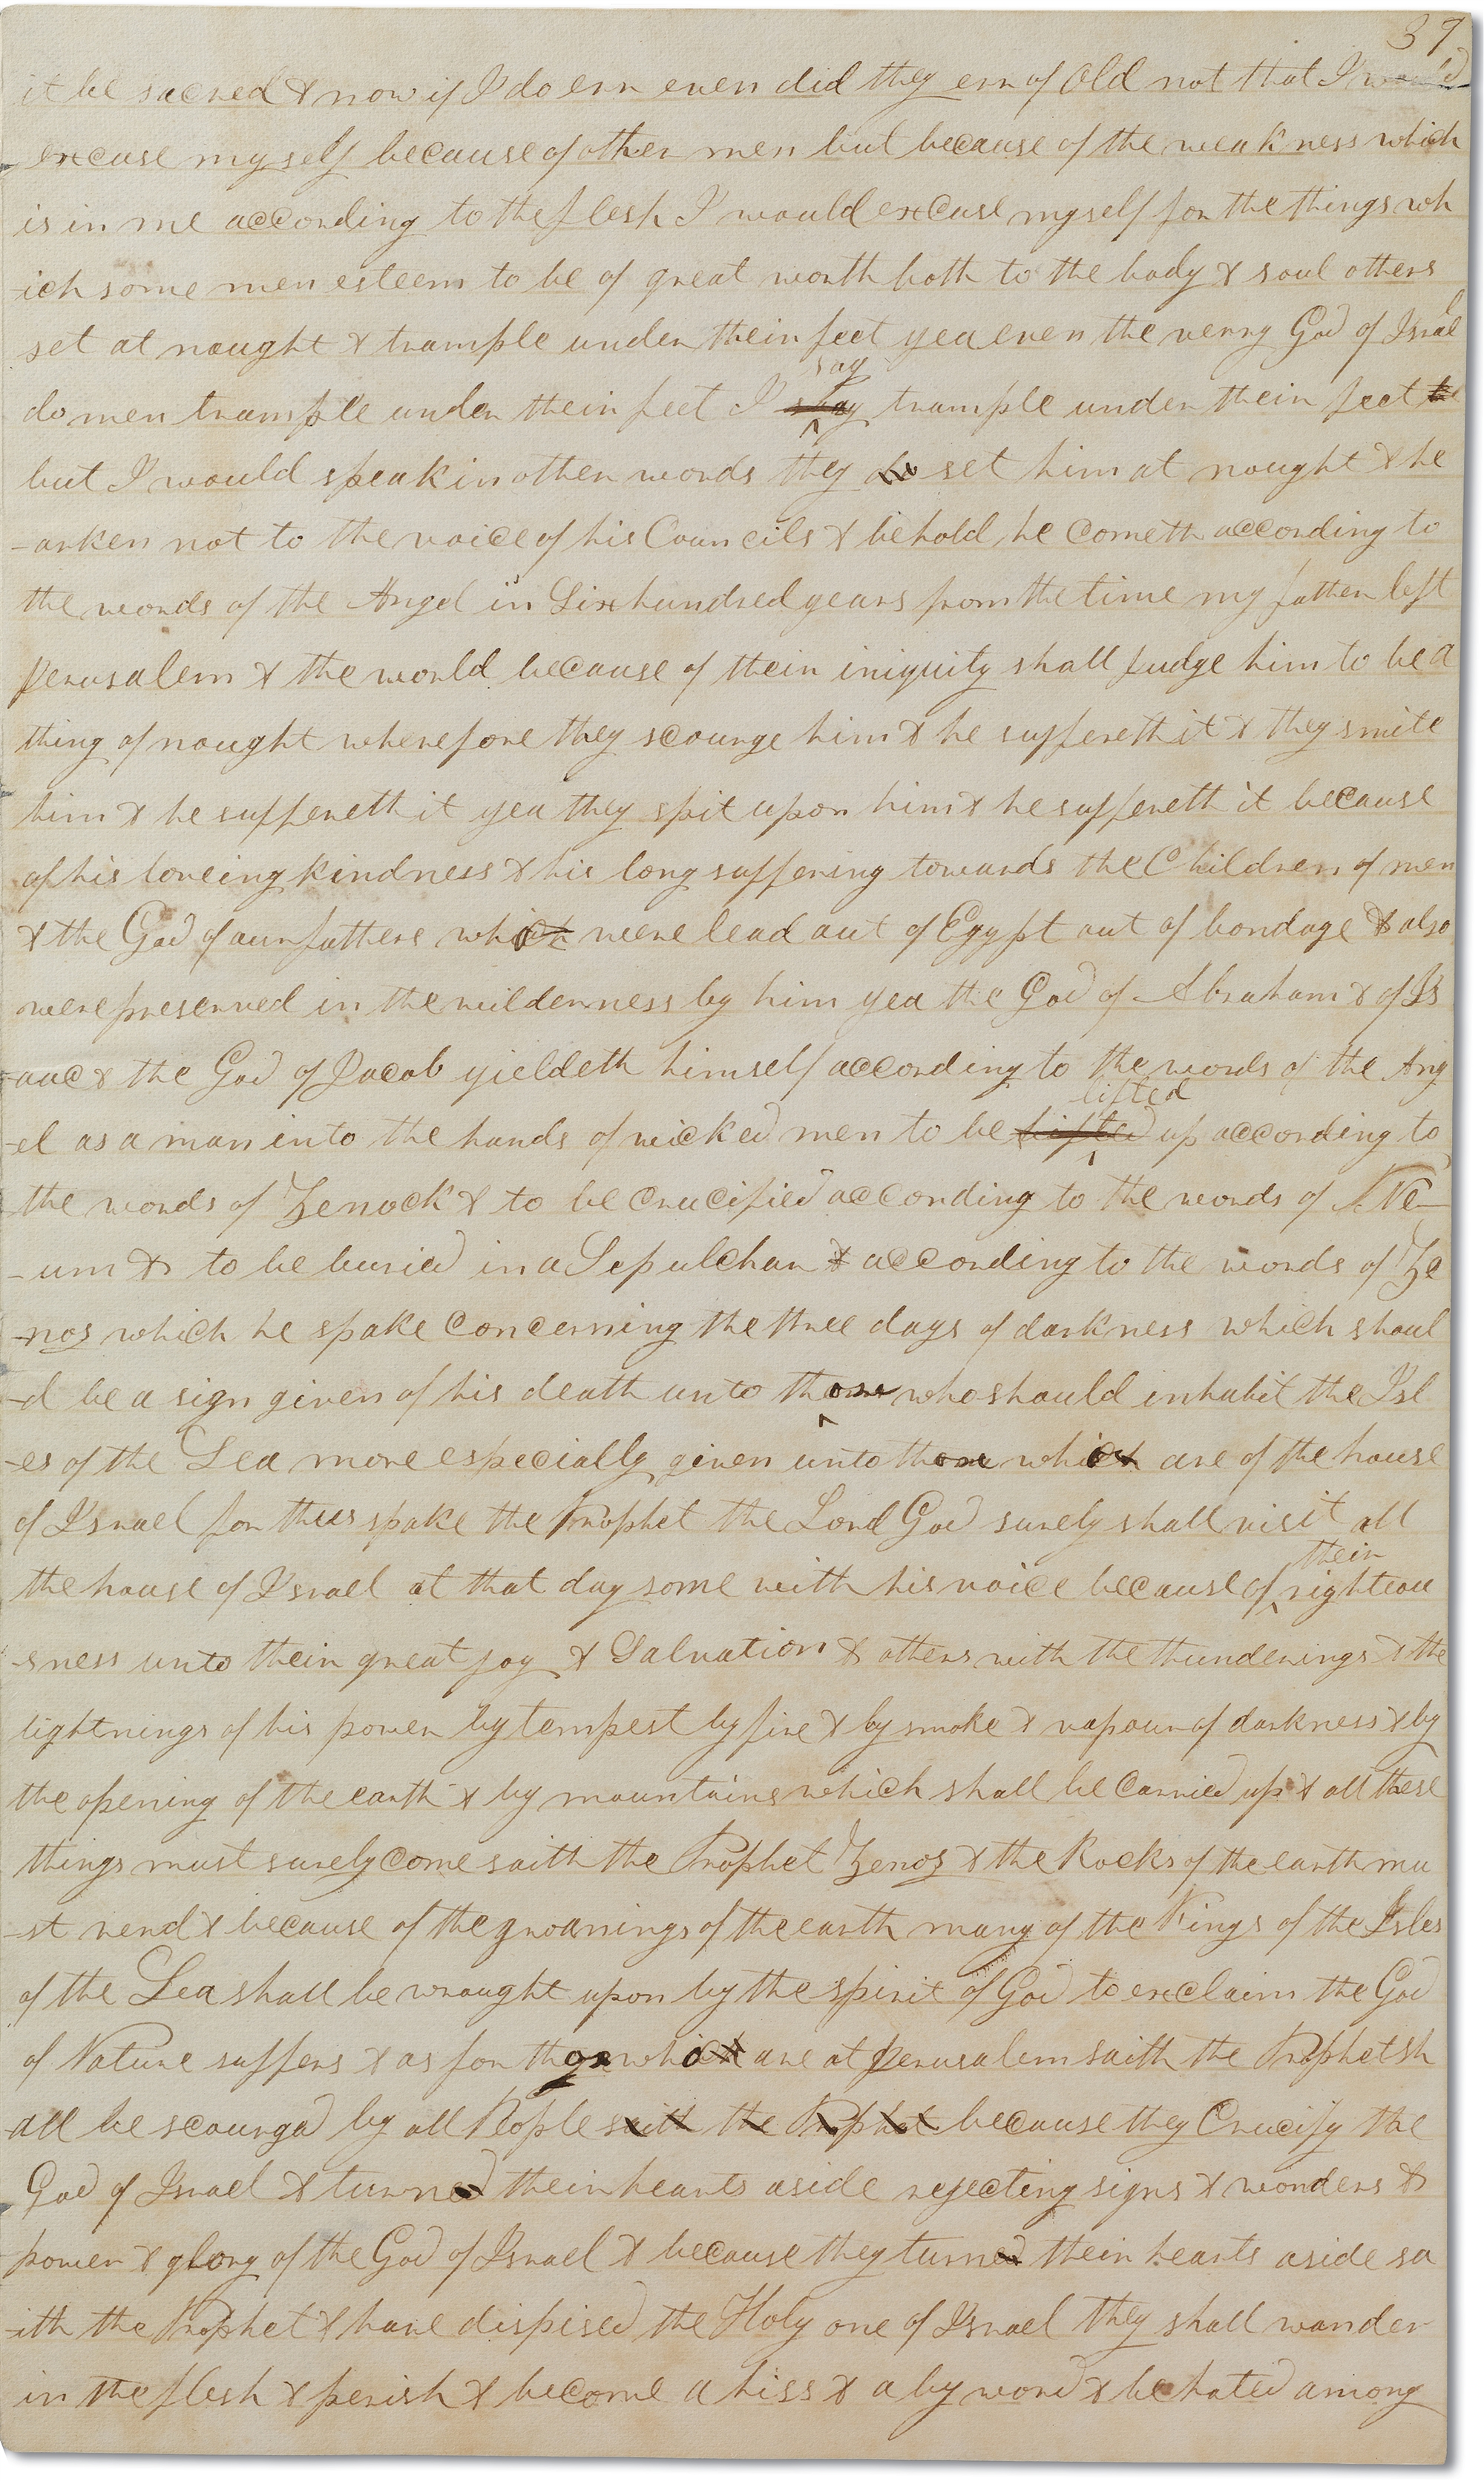 37
it be sacred & now if I do err even did they err of old not that I would
excuse myself because of other men but because of the weakness which
is in me according to the flesh I would excuse myself for the things wh
ich some men esteem to be of great worth both to the body & soul others
set at nought & trample under their feet yea even the verry God of Israel
say
do men trample under their feet I slay trample under their feet
but I would speak in other words they do set him at nought & he
-arken not to the voice of his Councils & behold he cometh according to
the words of the Angel in Six hundred years from the time my father left
Jerusalem & the world because of their iniquity shall judge him to be a
thing of nought wherefore they scourge him & he suffereth it & they smite
him & he suffereth it yea they spit upon him & he suffereth it because
of his loveing kindness & his long suffering towards the Children of men
& the God of our fathers which were lead out of Egypt out of bondage & also
were preserved in the wilderness by him yea the God of Abraham & of Is
-aac & the God of Jacob yieldeth himself according to the words of the Ang
lifted
-el as a man into the hands of wicked men to be lifted up according to
the words of Zenock & to be crucified according to the words of Ne
-um & to be buried in a Sepulchar & according to the words of Ze
-nos which he spake concerning the three days of darkness which shoul
-d be a sign given of his death unto those who should inhabit the Isl
-es of the Sea more especially given unto those which are of the house
of Israel for thus spake the Prophet the Lord God surely shall visit all
their
the house of Israel at that day some with his voice because of righteou
-sness unto their great joy & Salvation & others with the thunderings & the
lightnings of his power by tempest by fire & by smoke & vapour of darkness & by
the opening of the earth & by mountains which shall be carried up & all these
things must surely come saith the Prophet Zenos & the Rocks of the earth mu
-st rend & because of the groanings of the earth many of the Kings of the Isles
of the Sea shall be wrought upon by the spirit of God to exclaim the God
of Nature suffers & as for those which are at Jerusalem saith the Prophet sh
all be scourged by all People saith the Prophet because they Crucify the
God of Israel & turned their hearts aside rejecting signs & wonders &
power & glory of the God of Israel & because they turned their hearts aside sa
-ith the Prophet & have dispised the Holy one of Israel they shall wander
in the flesh & perish & become a hiss & a by word & be hated among